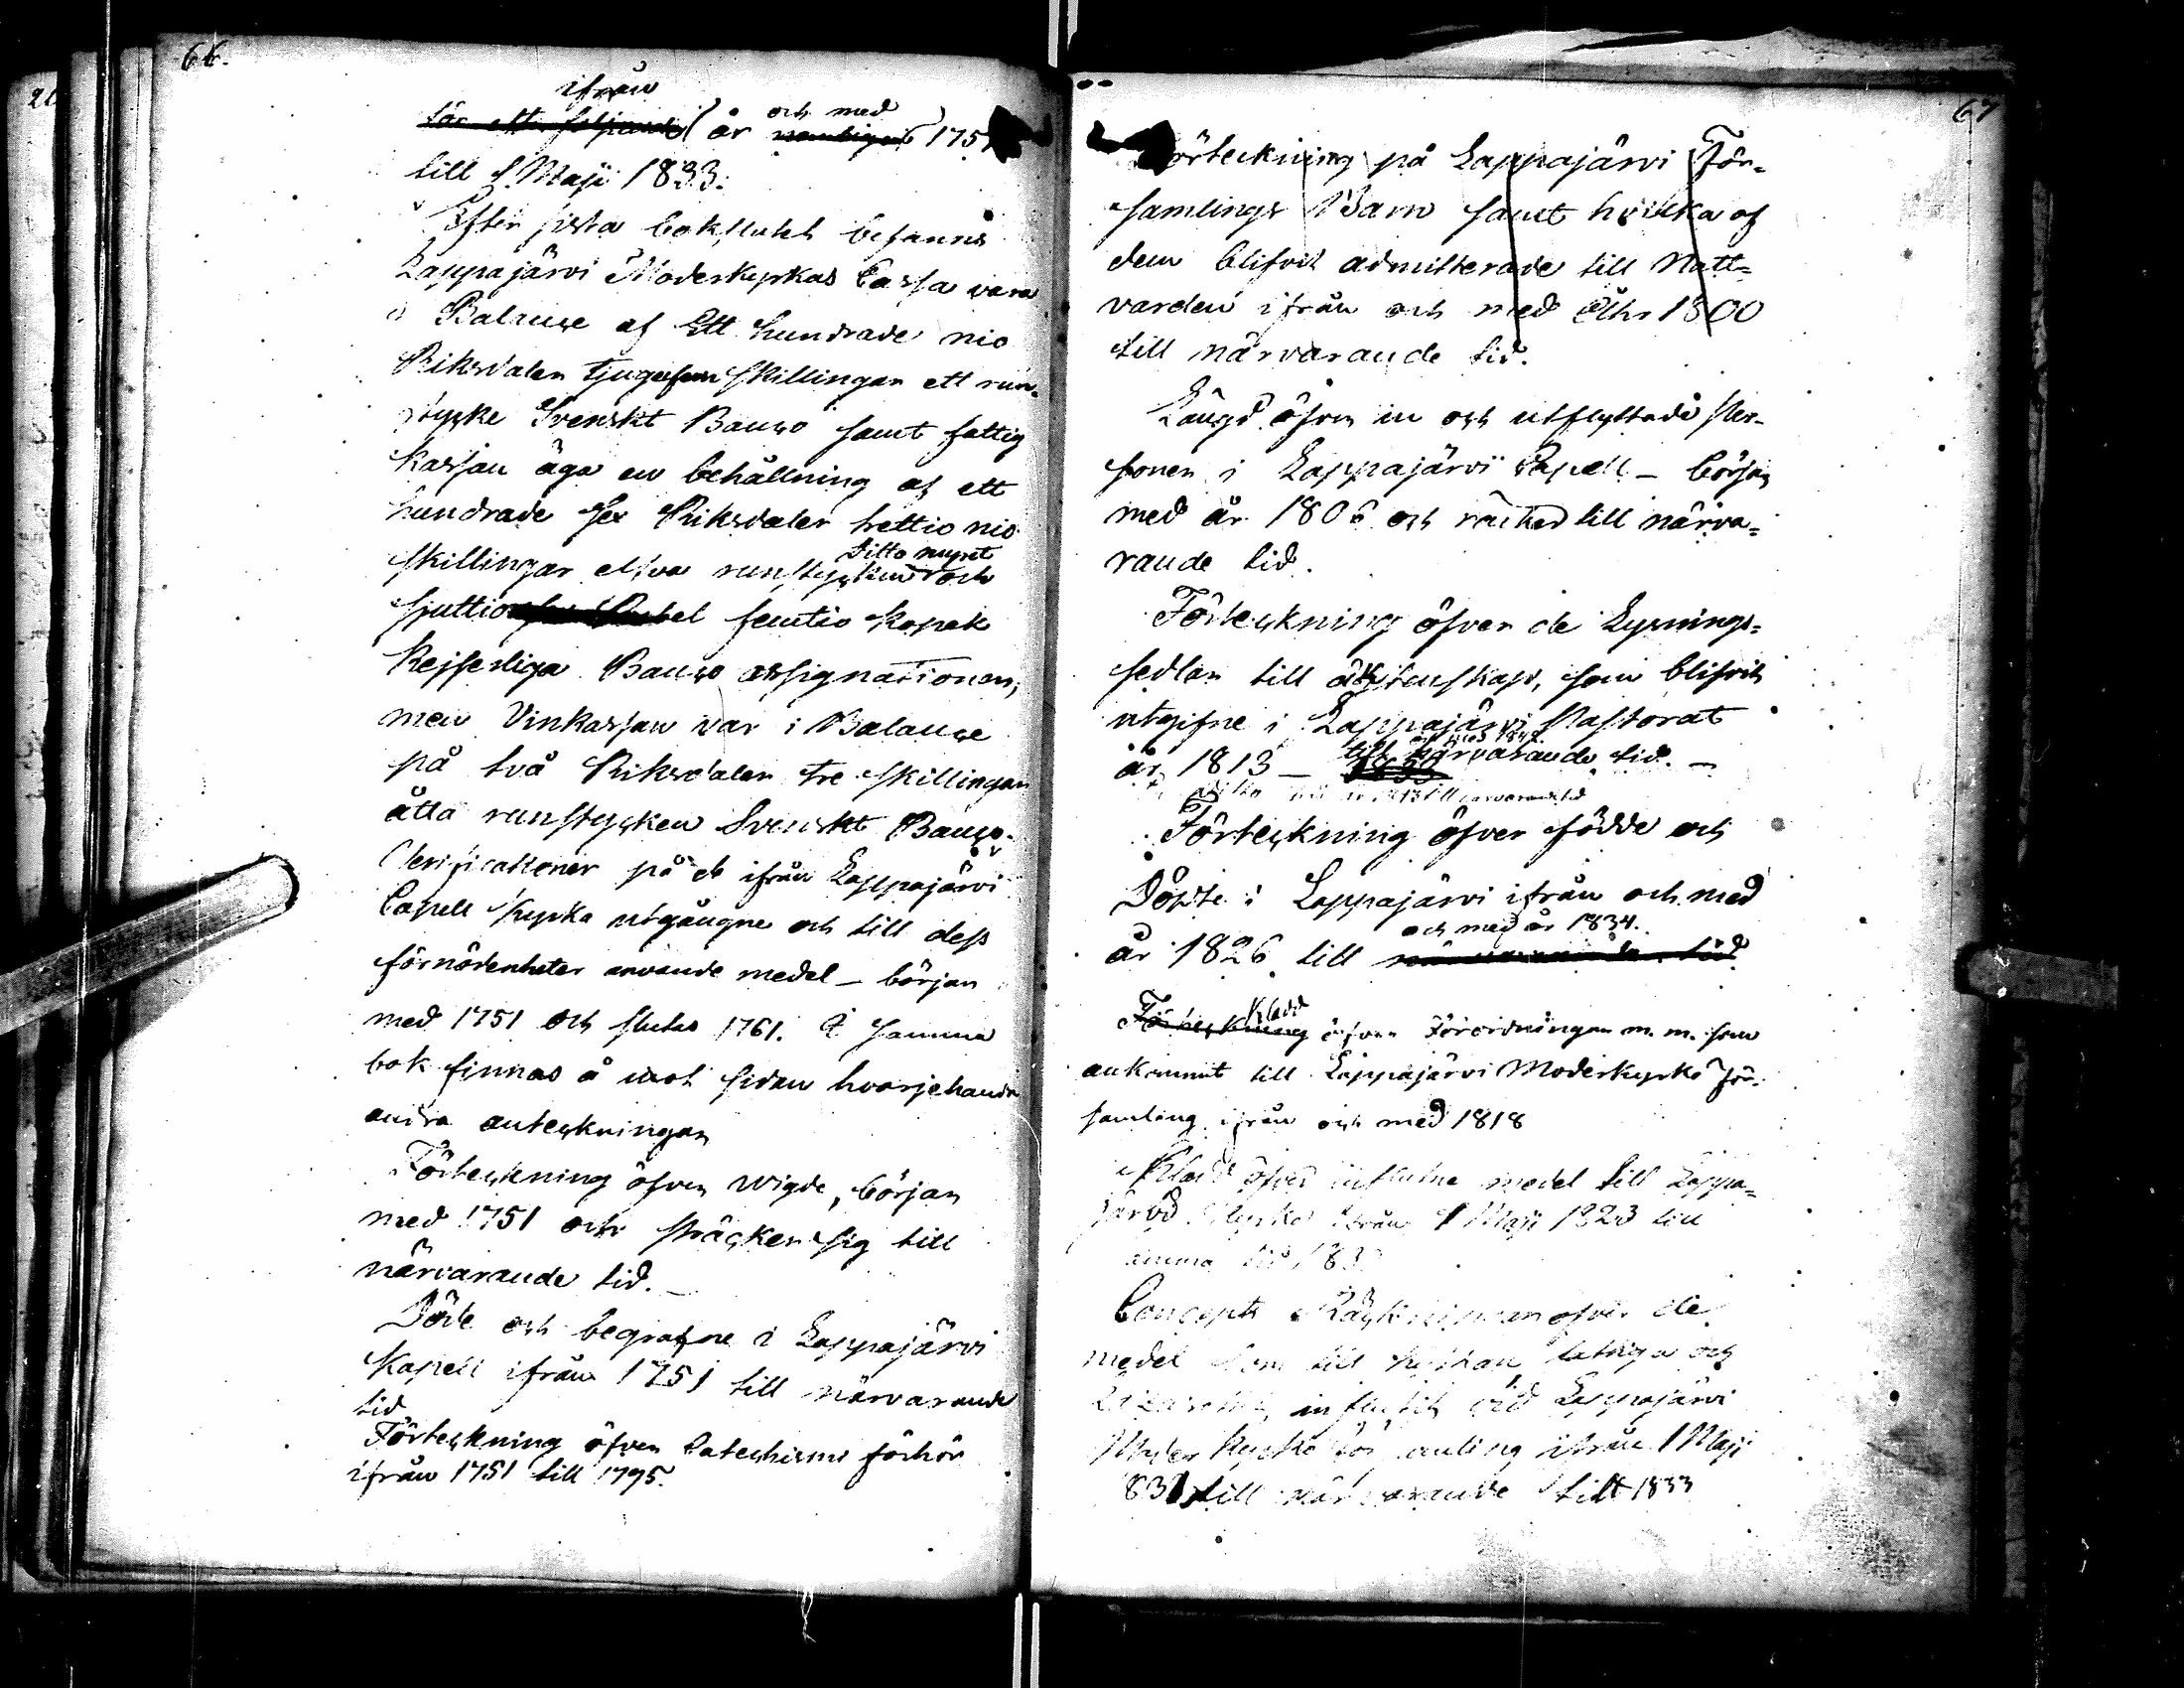 66.
ifrån
för ett följande år och med 1751
till 1 Maji 1833.
Efter sista bokslutet befanns
Lappajärvi Moderkyrkas Cassa vara
i Balance af Ett hundrade nio
Riksdaler tjugefem skillingar ett run-
stycke Svenskt Banco samt fattig
kassan äga en behållning af ett
hundrade sex Riksdaler trettio nio
ditto mynt
skillingar elfva runstycken och
sjuttio femtio Kopek
Kejserliga Banco assignationer,
men Vinkassan var i Balance
på två Riksdaler tre skillingar
åtta runstycken Svenskt Banco.
Verificationer på de ifrån Lappajärvi
Capell Kyrka utgångne och till dess
förnödenheter använde medel – börjar
med 1751 och slutas 1761. I samma
bok finnas å mot sidan hvarjehanda
andra anteckningar
Förteckning öfver wigde, börjar
med 1751 och sträcker sig till
närvarande tid. –
Döde och begrafne i Lappajärvi
Kapell ifrån 1751 till närvarande
tid
Förteckning öfver Catechismi förhör
ifrån 1751 till 1795.
67
Förteckning på Lappajärvi För-
samlings Barn samt hvilka af
dem blifvit admitterade till Natt-
varden ifrån och med Åhr 1800
till närvarande tid.
Längd öfver in och utflyttade Per-
soner i Lappajärvi Capell – börjar
med år 1806 och räcker till närva-
rande tid.
Förteckning öfver de Lysnings-
sedlar till äktenskap, som blifvit
utgifne i Lappajärvi Pastorat
och med 1842
år 1813 – till närvarande tid. –
till närvarande tid
Förteckning öfver födde och
Döpte i Lappajärvi ifrån och med
och med år 1834.
år 1826 till närvarande tid.
Kladd
Förteckning öfver Förordningar m. m. som
ankommit till Lappajärvi Moderkyrko För-
samling ifrån och med 1818
Kladd öfver influtne medel till Lappa-
järvi Kyrka ifrån 1 Maji 1823 till
samma tid 183
Concept Räkningar öfver de
medel som till kyrkan fattiga och
influtit vid Lappajärvi
Moder Kyrko församling ifrån 1 Maji
1831 till närvarande till 1833